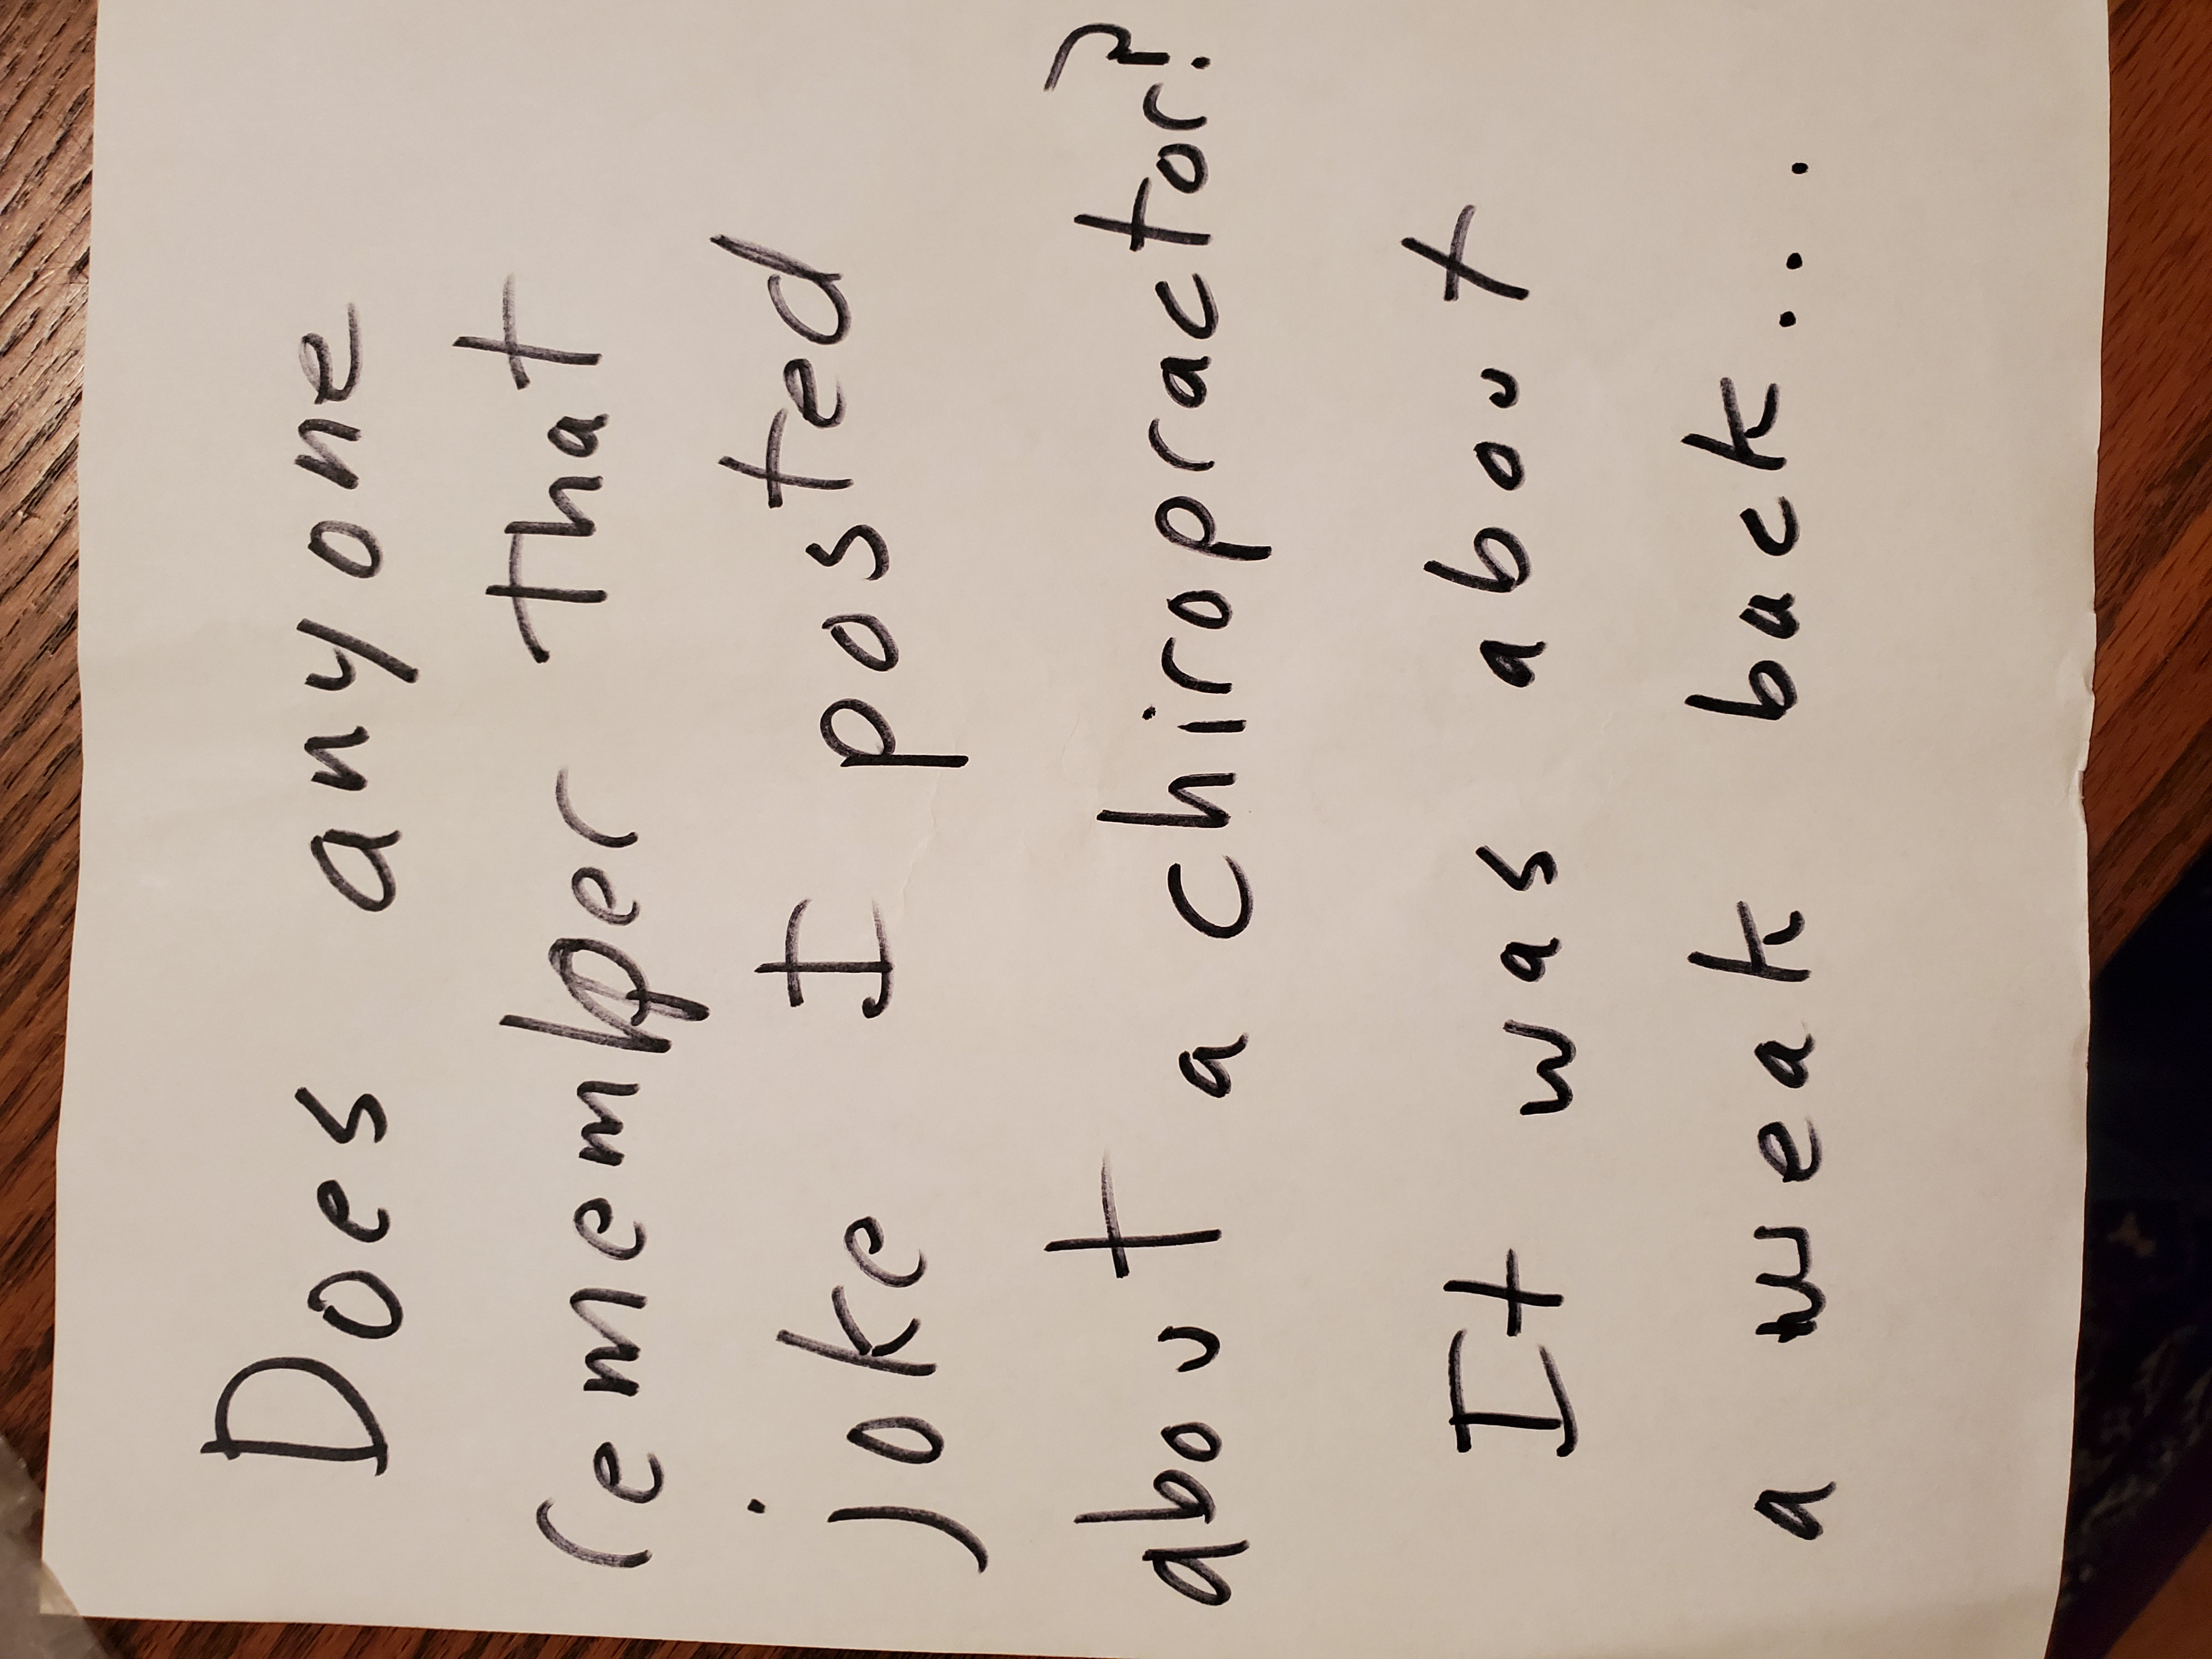 Does anyone
remember that
joke I posted
about a chiropractor?
It was about
a weak back...